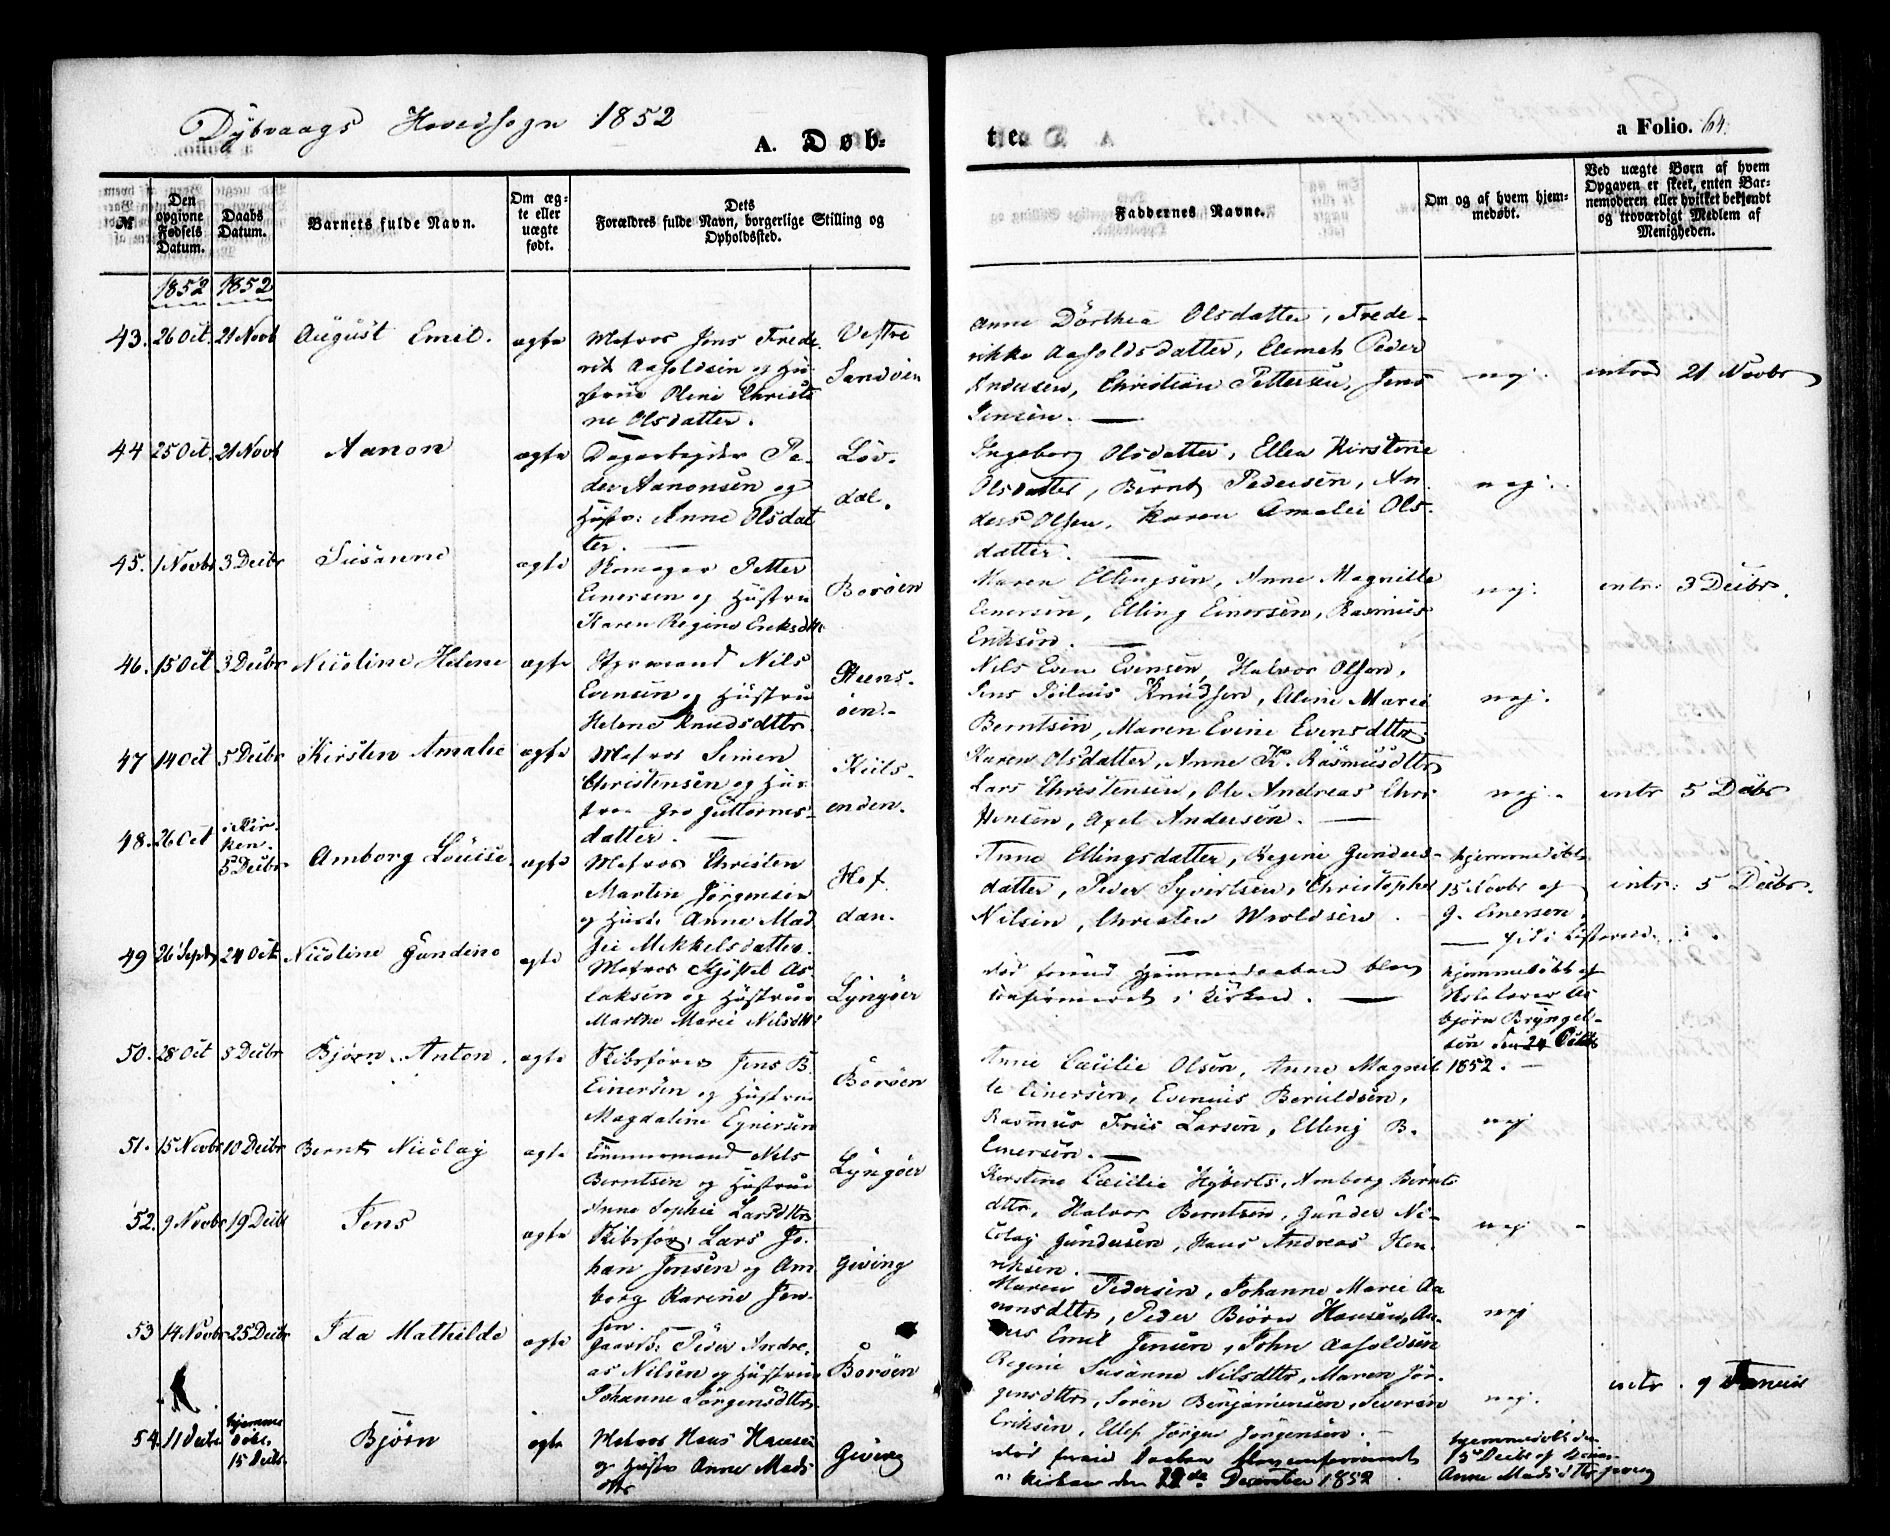 Dybvaags Hovedsogn 1852
A. Døb-
te.
a Folio. 64.
№
Den opgivne Fødsels Datum.
Daabs Datum.
Barnets fulde Navn.
Om ægte eller uægte født.
Dets Forældres fulde Navn, borgerlige Stilling og Opholdssted.
Faddernes Navne.
Om og af hvem hjemmedøbt.
Ved uægte Børn af hvem Opgaven er skeet, enten Barnemoderen eller hvilket bekjendt og troværdigt Medlem af Menigheden.
1852 1852
43. 26 Oct. 21 Novb August Emil. ægte Matros Jens Frede
rik Aasoldsen og Hu
strue Oline Christi
ne Olsdatter.
Vestre
Sandøen
Anne Dorthea Olsdatter, Frede-
rikke Aasoldsdatter, Peder
Andersen, Christian Pettersen, Jens
Jensen.
nej. 21 Novbr
44 25 Oct. 21 Novb Aanon ægte Dagarbejder Pe-
der Aanonsen og
Hustr: Anne Olsdat
ter.
Løv-
dal.
Ingeborg Olsdatter, Ellen Kirstine
Olsdatter, Bernt Pedersen, An-
ders Olsen, Karen Amalie Ols-
datter.
nej.
45. 1 Novbr 3 Decbr Susanne ægte
Einersen og Hustru
Karen Regine Eriksdttr
Borøen
Maren Ellingsen, Anne Magnille
Einersen, Elling Einersen, Rasmus
Eriksen.
nej. intr: 3 Decbr.
46. 15 Oct 3 Decbr Nicoline Helene ægte Styrmand Nils
Evensen og Hustrue
Helene Knudsdttr.
Steens-
øen.
Nils Even Evensen, Halvor Olsen,
Jens Julius Knudsen, Aline Marie
Berntsen, Maren Evine Evensdttr.
nej.
47 14 Oct 5 Decbr Kirsten Amalie ægte Matros Simen
Christensen og Hus-
true Gro Guttorms-
datter.
Kiils-
enden.
Karen Olsdatter, Anne K. Rasmusdttr
Lars Christensen, Ole Andreas Chri
stensen, Axel Andersen.
nej. intr 5 Decbr
48. 26 Oct i Kir-
ken.
5 Decbr Amborg Louise. ægte Matros Christen
Martin Jørgensen
og Hustr. Anne Mad
Mikkelsdatter.
Hof
dan.
Anne Ellingsdatter, Regine Gunders-
datter, Peder Syvertsen, Christopher
Nilsen, Christen Wroldsen.
hjemmedøbt
15 Novbr af
J. Einersen,
intr: 5 Decbr.
49 26 Septbr 24 Oct. Nicoline Gundine ægte Matros Kjøstel As-
laksen og Hustrue
Marthe Marie Nilsdttr
Lyngøer
død forend Hjemmedaaben blev
confirmeret i Kirken.
hjemmedøbt af
Skolelærer As
bjørn Bryngel-
sen den 24 Octbr
1852.
50. 28 Oct 5 Decbr Bjørn Anton. ægte Skibsfører Jens B.
Einersen og Hustrue
Magdaline Einersen
Borøen
Anne Cæcilie Olsen, Anne Magnil
le Einersen, Evenius Beruldsen,
Rasmus Friis Larsen, Elling B.
Einersen.
nej
51. 15 Novbr 10 Decbr Bernt Nicolay ægte Tømmermand Nils
Berntsen og Hustrue
Anne Sophie Larsdttr
Lyngøer
Kirstine Cæcilie Hyberts, Amborg Bernts
dttr, Halvor Berntsen, Gunder Ni-
colay Gundersen, Hans Andreas Hen-
riksen.
nej
52. 9 Novbr 19 Decbr Jens ægte Skibsfør: Lars Jo-
han Jensen og Am
borg Karine Jen-
sen.
Giving
Maren Pedersen, Johanne Marie Aa
nonsdttr, Peder Biørn Hansen, An-
ders Emil Jensen, John Aasoldsen
nej
53 14 Novbr 25 Decbr Ida Mathilde ægte Gaardb: Peder Andre-
as Nilsen og Hustrue
Johanne Jørgensdttr
Borøen
Regine Susanne Nilsdttr, Maren Jør-
gensdttr, Søren Benjaminsen, Severin
Eriksen, Ellef Jørgen Jørgensen.
nej. intr. 9 Januar
54. 11 Decbr hjemme
døbt,
15 Decbr Bjørn ægte Matros Hans Hansen
og Hustr Anne Mads
dttr
Giving
død forend Daaben blev confirmeret
i Kirken den 29de December 1852
hjemmedøbt den
15 Decbr af
Anne Madsdttr Giving